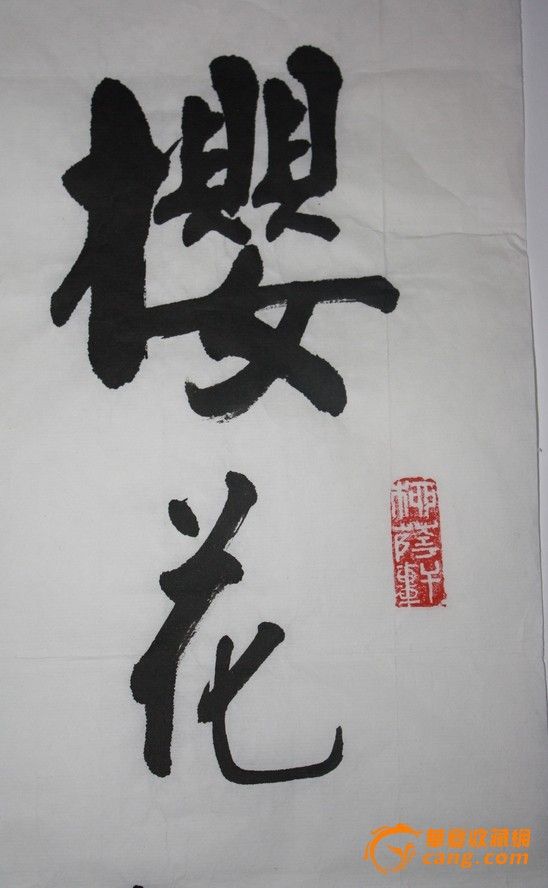 櫻花
柳蔭軒
華夏收藏網
cang.com